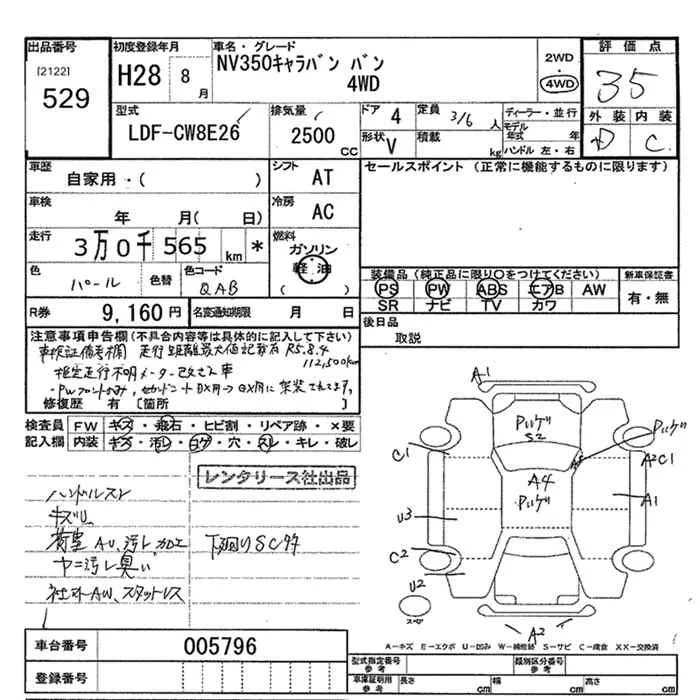 出品番号
[2122]
529
初度登録年月
H28 8 月
車名・グレード
NV350キャラバン バン
4WD
2WD
・
4WD
評価点
3.5
外装 内装
D C
型式
LDF-CW8E26
排気量
2500 CC
ドア 4
定員 3/6 人
ディーラー・並行
モデル年式 年
形状 V
積載 kg
ハンドル 左・右
車歴
自家用・( )
シフト AT
セールスポイント (正常に機能するものに限ります)
車検
年 月( 日)
冷房 AC
走行
3万0千565 km *
燃料
ガソリン
軽油
色
パール
色替
色コード
QAB
装備品 (純正品に限り○をつけてください)
新車保証書
PS PW ABS エアB AW
有・無
SR ナビ TV カワ
R券 9,160円
名変通知期限 月 日
後日品
取説
注意事項申告欄 (不具合内容等は具体的に記入して下さい)
車検証備考欄 走行距離最大値記載有 R5.8.4
112,500km
推定走行不明メーター改ざん車
・PWフロントのみ,セカンドシートDX用→GX用に架装されてます。
修復歴 有 [箇所 ]
検査員 FW キズ・飛石・ヒビ割・リペア跡・×要
記入欄 内装 キズ・汚レ・コゲ・穴・スレ・キレ・破レ
レンタリース社出品
ハンドルスレ
キズU
荷室 AU、汚レ、加工
ヤニ汚レ臭い
社外AW、スタッドレス
下廻りSC有
A1
C1
U3
C2
U2
スペア
Pいげ
S2
A4
Pいげ
Pいげ
A2C1
A1
A2
車台番号 005796
登録番号
A-キズ E-エクボ U-凹み W-補修跡 S-サビ C-腐食 XX-交換済
型式指定番号
参考
類別区分番号
参考
車庫証明用
参考
長さ cm
幅 cm
高さ cm